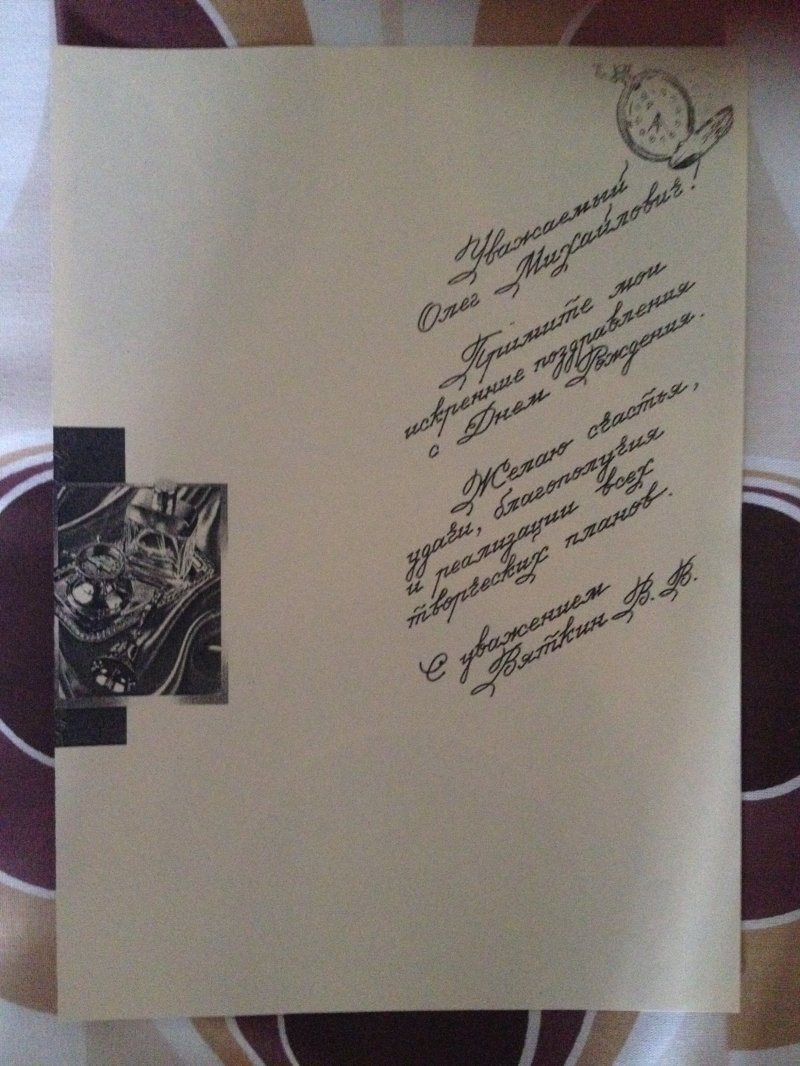 Уважаемый
Олег Михайлович!
Примите мои
искренние поздравления
с Днем Рождения.
Желаю счастья,
удачи, благополучия
и реализации всех
творческих планов.
С уважением
Вяткин В. В.